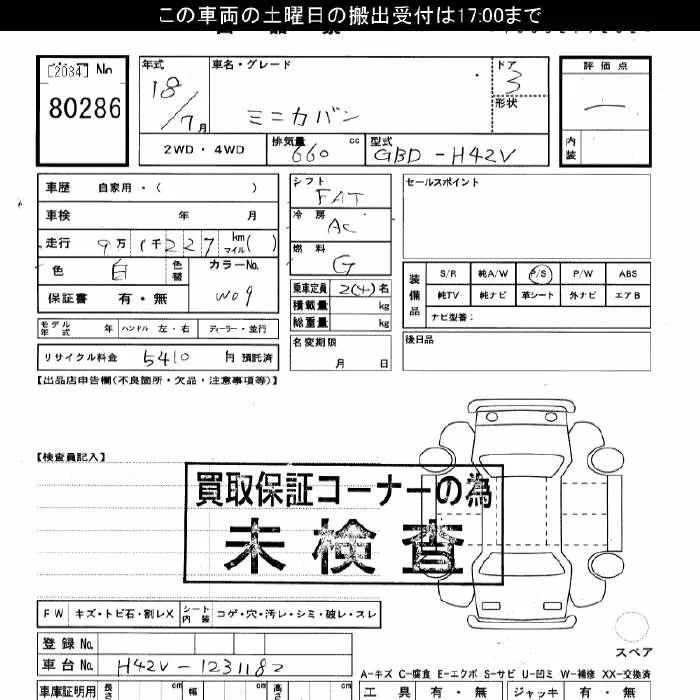 この車両の土曜日の搬出受付は17:00まで
[2034] No
80286
年式 車名・グレード ドア 評価点
18/7月 ミニカバン 3 —
形状
2WD・4WD 排気量 660 cc 型式 GBD-H42V 内装
車歴 自家用・( ) シフト FAT セールスポイント
車検 年 月 冷房 AC
走行 9万1千227 km マイル( ) 燃料 G
色 白 色替 カラーNo. W09
装備品 S/R 純A/W P/S P/W ABS
純TV 純ナビ 革シート 外ナビ エアB
ナビ型番:
保証書 有・無 乗車定員 2(4)名
積載量 kg
総重量 kg
モデル年式 年 ハンドル 左・右 ディーラー・並行
名変期限 月 日 後日品
リサイクル料金 5410 円 預託済
【出品店申告欄(不良箇所・欠品・注意事項等)】
【検査員記入】
買取保証コーナーの為
未検査
FW キズ・トビ石・割レX シート内装 コゲ・穴・汚レ・シミ・破レ・スレ
登録No.
車台No. H42V-1231182
スペア
A-キズ C-腐食 E-エクボ S-サビ U-凹ミ W-補修 XX-交換済
車庫証明用 長さ cm 幅 cm 高さ cm 工具 有・無 ジャッキ 有・無